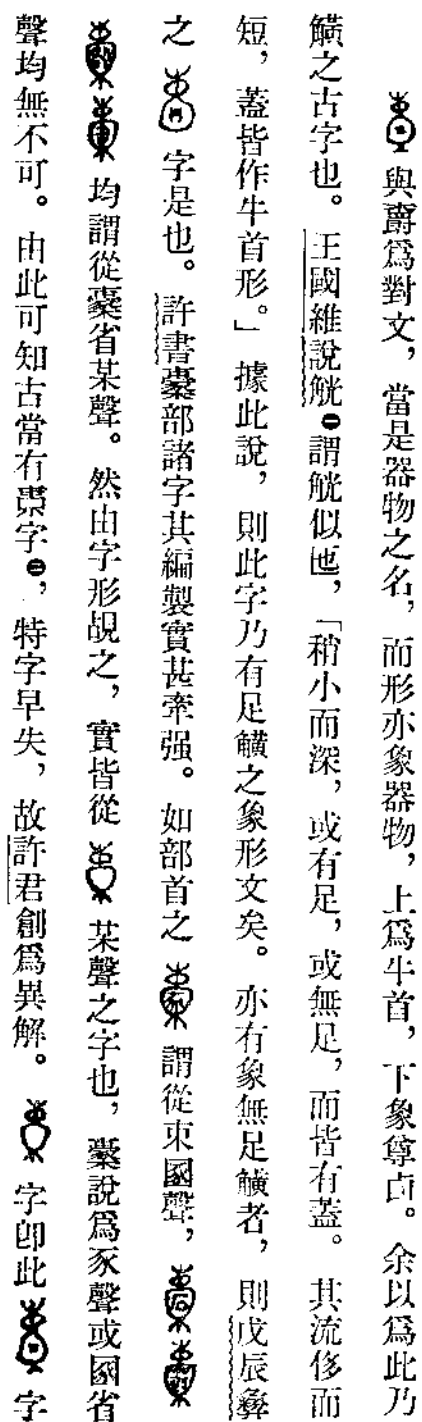 與爵爲對文,當是器物之名,而形亦象器物,上爲牛首,下象尊卣。余以爲此乃
觵之古字也。王國維說觥㊀謂觥似匜,「稍小而深,或有足,或無足,而皆有蓋。其流侈而
短,蓋皆作牛首形。」據此說,則此字乃有足觵之象形文矣。亦有象無足觵者,則戊辰彝
之 字是也。許書㯻部諸字其編製實甚牽强。如部首之 謂從束圂聲,
均謂從㯻省某聲。然由字形覘之,實皆從 某聲之字也,㯻說爲豕聲或圂省
聲均無不可。由此可知古當有 字㊁,特字早失,故許君創爲異解。 字卽此 字